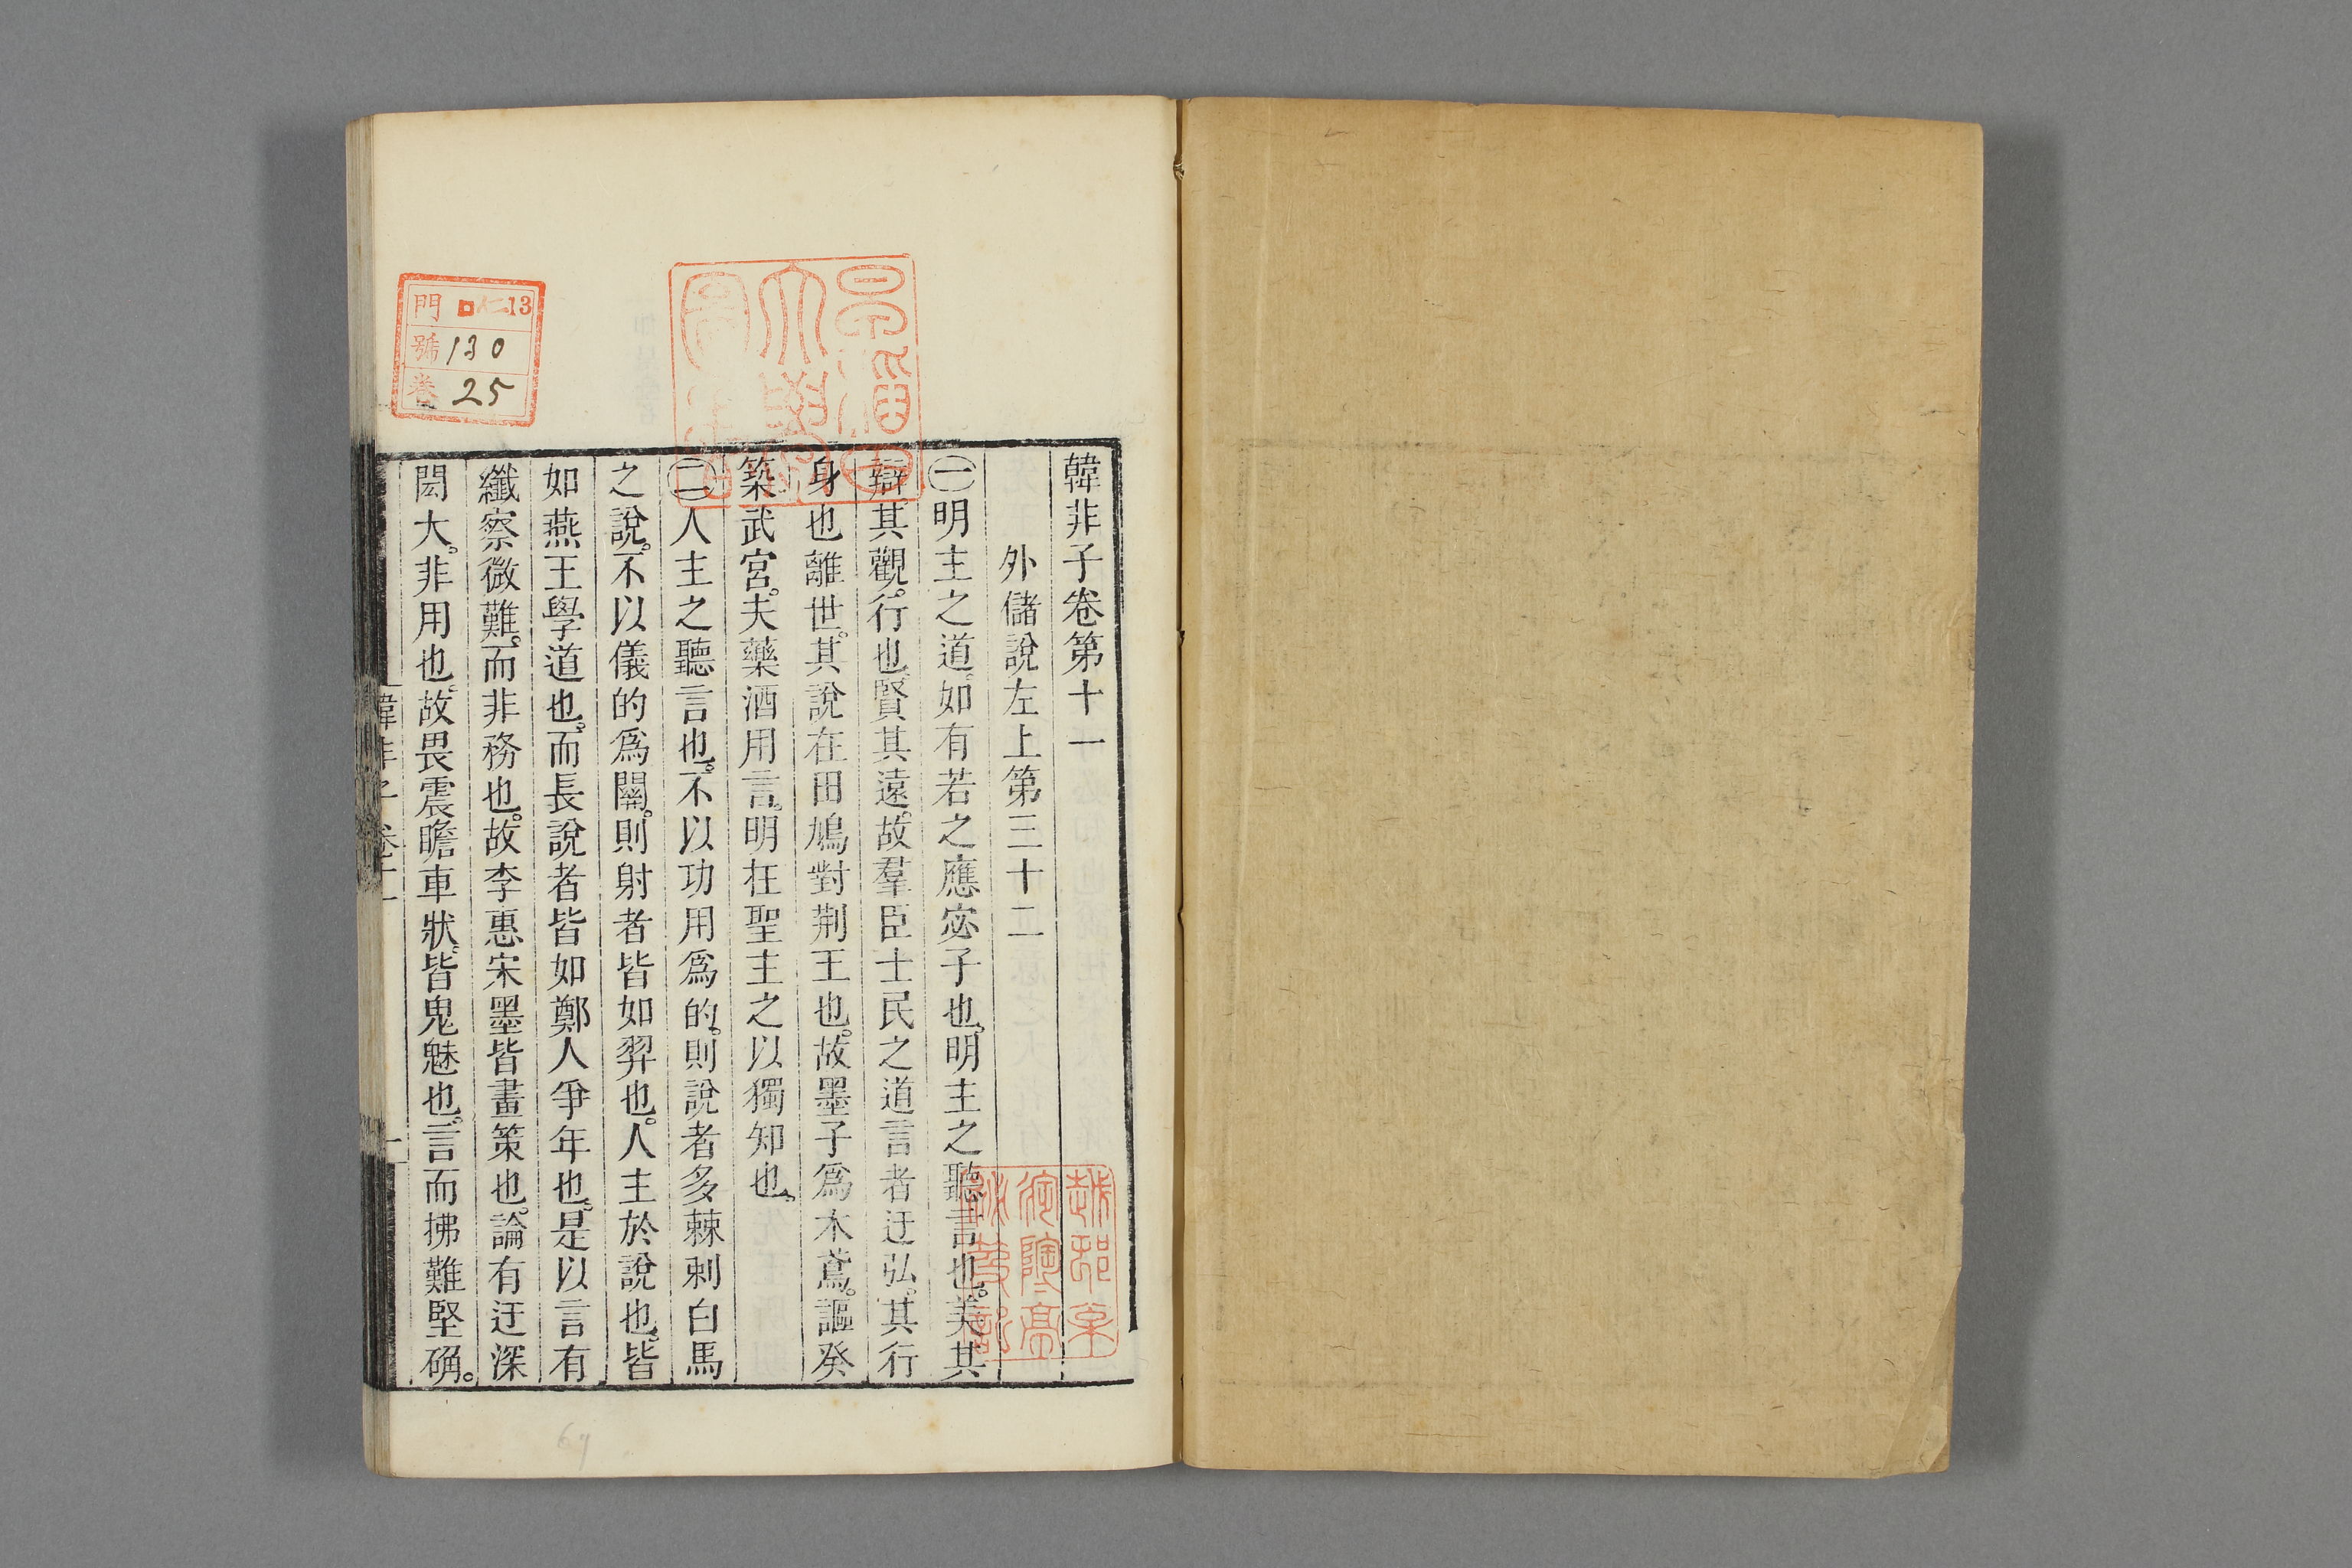 韓非子卷第十一
外儲說左上第三十二
㊀明主之道。如有若之應宓子也。明主之聽言也。美其
辯其觀。行也賢其遠。故羣臣士民之道言者迂弘。其行
身也離世。其說在田鳩對荆王也。故墨子爲木鳶。謳癸
築武宮。夫藥酒用言。明在聖主之以獨知也。
㊁人主之聽言也。不以功用爲的。則說者多棘刺白馬
之說。不以儀的爲關。則射者皆如羿也。人主於說也。皆
如燕王學道也。而長說者皆如鄭人爭年也。是以言有
纖察微難。而非務也。故李惠宋墨皆畫策也。論有迂深
閎大。非用也。故畏震瞻車狀。皆鬼魅也。言而拂難堅确。
韓非子 卷十一
一
門 13
號 130
卷 25